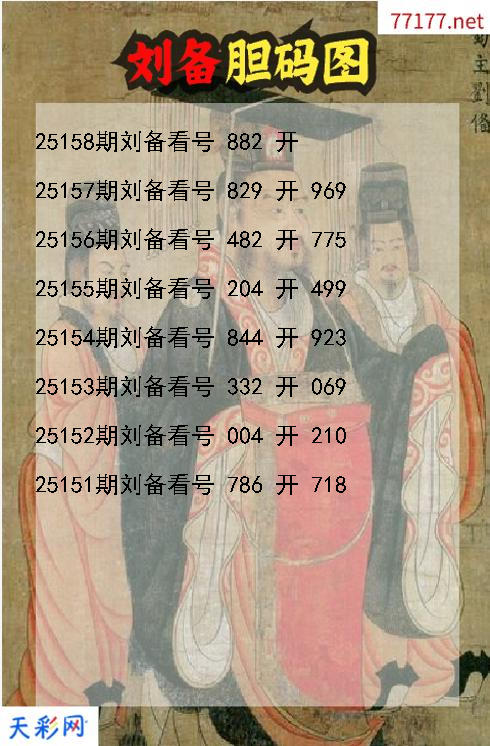 77177.net
蜀主劉備
刘备胆码图
25158期刘备看号 882 开
25157期刘备看号 829 开 969
25156期刘备看号 482 开 775
25155期刘备看号 204 开 499
25154期刘备看号 844 开 923
25153期刘备看号 332 开 069
25152期刘备看号 004 开 210
25151期刘备看号 786 开 718
天彩网